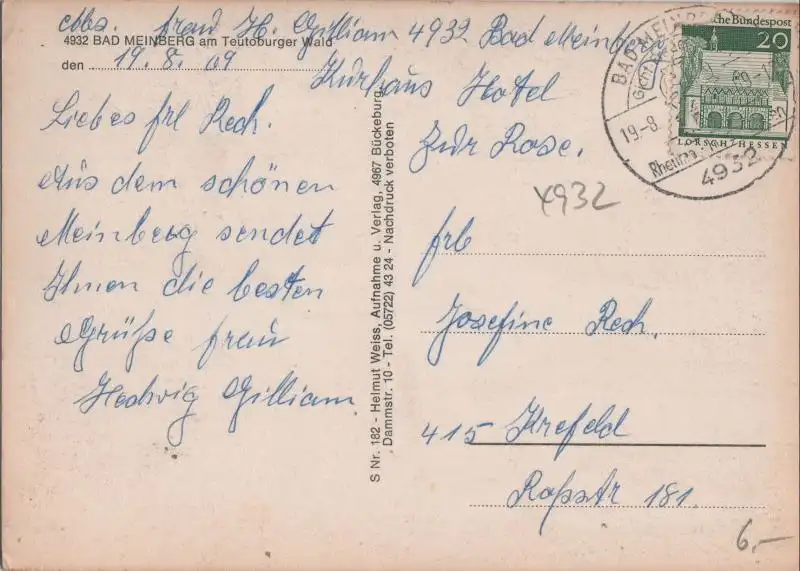 Abs. Frau H. Gilliam 4932 Bad Meinberg
4932 BAD MEINBERG am Teutoburger Wald
den 19. 8. 69
Kurhaus Hotel
Zur Rose.
Liebes Frl Rech.
Aus dem schönen
Meinberg sendet
Ihnen die besten
Grüße Frau
Hedwig Gilliam
S Nr. 182 - Helmut Weiss, Aufnahme u. Verlag, 4967 Bückeburg,
Dammstr. 10 - Tel. (05722) 43 24 - Nachdruck verboten
che Bundespost
20
LORSCH/HESSEN
BAD MEINB
19.-8.
Rheuma
4932
4932
Frl
Josefine Rech.
415 Krefeld
Roßstr 181.
6,-